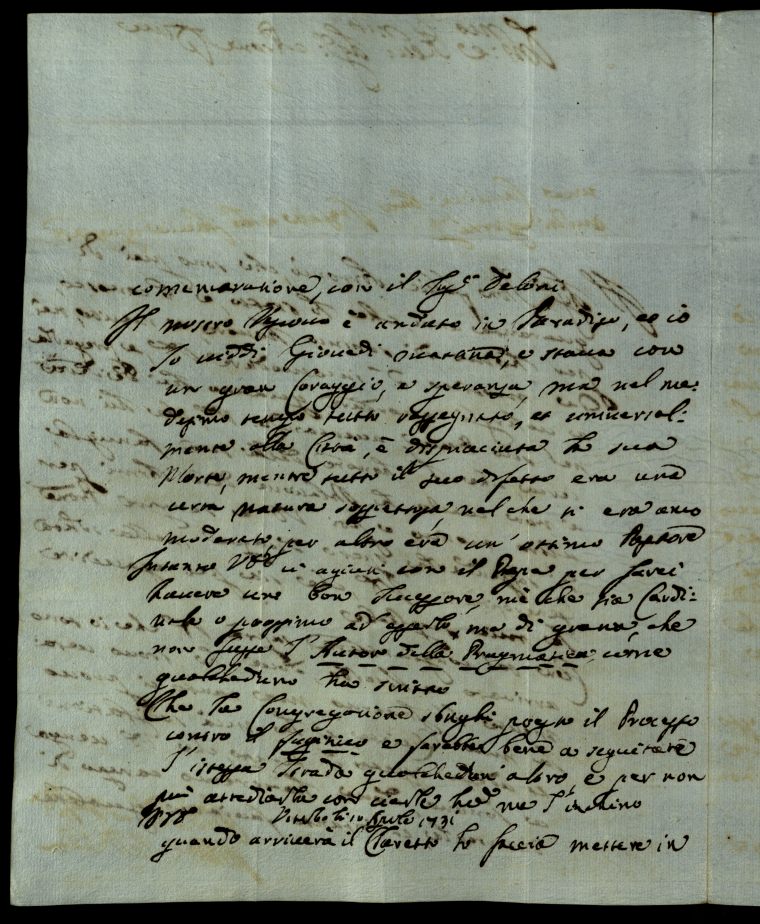 con il Sig.r Deloni
Il nostro Vescovo è andato in Paradiso, et io
lo viddi Giovedì mattina, e stava con
un gran Coraggio, e speranza, ma nel me:
desimo tempo tutto rassegnato, et universal:
mente alla Città, è dispiaciuta la sua
Morte, mentre tutto il suo difetto era una
certa natura nel che si era anco
moderato, per altro era un' ottimo Pastore
Intanto V.S. ci agiuti con il Papa per farci
havere un bon Successore, mà che sia Cardi:
nale o prossimo ad esserlo, ma di grazia, che
non fusse l'Autore della Pragmatica, come
qualcheduno ha sentito
Che la Congregazione sbrighi presto il Processo
contro il e sarebbe bene a seguitare
l'istessa strada qualchedun' altro, e per non
più attediarla con ciarle me l'inchino
Viterbo li 10 Aprile 1731
quando arriverà il Claretto lo faccia mettere in